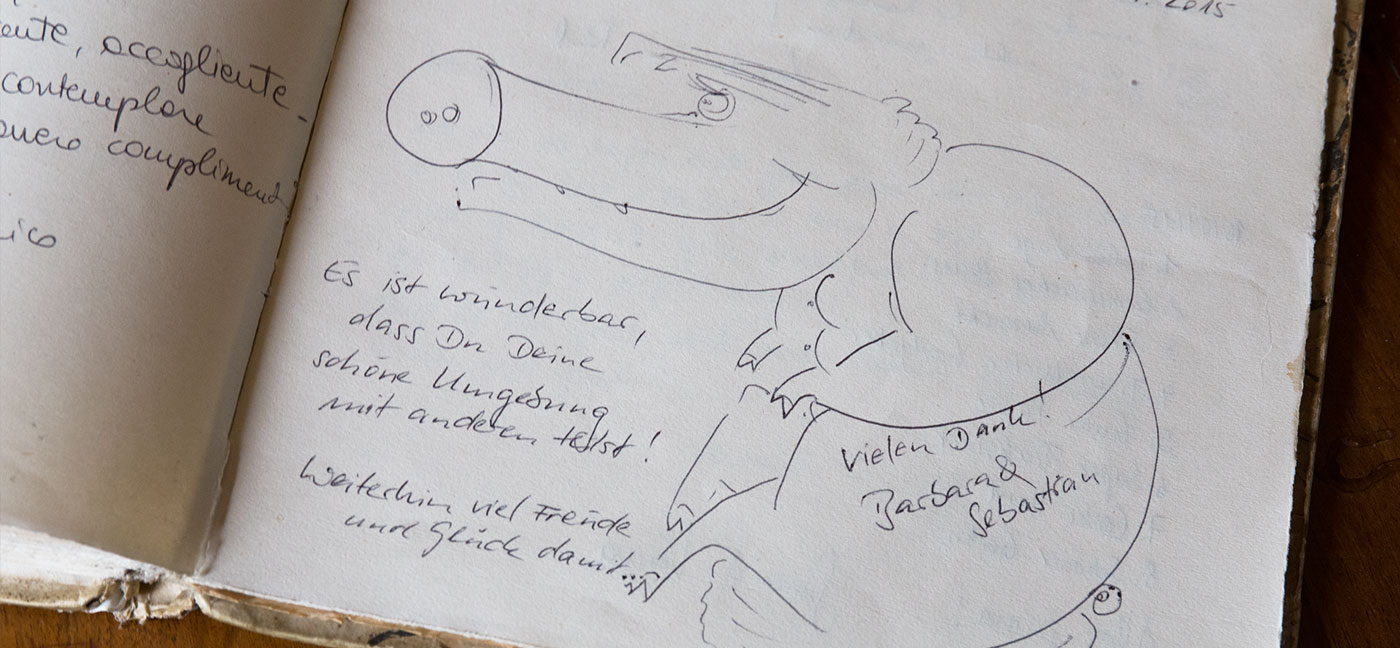 accogliente
contemplare
complimenti
2015
Es ist wunderbar,
dass Du Deine
schöne Umgebung
mit anderen teilst!
Weiterhin viel Freude
und Glück damit...
Vielen Dank!
Barbara &
Sebastian